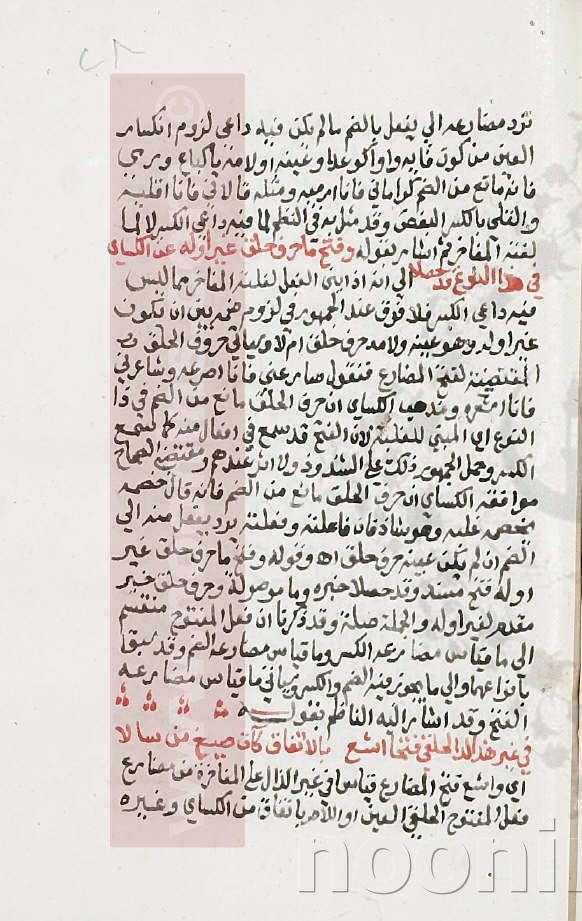 ترد مضارعه الى يفعل بالضم مالم يكن فيه داعى لزوم انكسار
العين من كون فايه واوا كوعد او عينه اولامه ياكباع ورمى
فانه مانع من الضم كراماني فانا ارميه ومثله قالاني فانا اقليه
والقلى بالكسر البغض وقد مثل به في النظم لما فيه داعى الكسر لا لما
لغلبة المفاخر ثم اشار بقوله وفتح ما حرف حلق غير اوله عن الكساي
في هذا النوع قد حصلا اي انه اذا بنى الفعل لغلبة المفاخر مما ليس
فيه داعي الكسر فلا فرق عند الجمهور في لزوم ضمه بين ان تكون
غير اوله وهو عينه ولامه حرف حلق ام لا وسياتي حروف الحلق
المقتضية لفتح المضارع فتقول صارعني فانا اصرعه وشاعرني
فانا اشعره ومذهب الكساي ان حرف الحلق مانع من الضم في ذا
النوع اي المبني للغلبة لان الفتح قد سمع في افعال منه كما سمع
الكسر وحمل الجمهور ذلك على الشذوذ ولا اثر عندهم ومقتضى الصحاح
موافقة الكساي ان حرف الحلق مانع من الضم فانه قال خصمه
يخصمه غلبه وهو شاذ فان فاعلته ففعلته يرد يفعل منه الى
الضم ان لم يكن عينه حرف حلق اه وقوله وفتح ما حرف حلق غير
اوله فتح مبتدا وقد حصلا خبره وما موصولة وحرف حلق خبر
مقدم لغير اوله والجملة صلة وقد ذكرنا ان فعل المفتوح منقسم
الى ما قياس مضارعه الكسر وما قياس مضارعه الضم وقد سبقا
بانواعهما والى ما يجوز فيه الضم والكسر وسياتي ما قياس مضارعه
الفتح وقد اشار اليه الناظم بقوله
في غير هذا لذا الحلقي فتحا اشع بالاتفاق كآت صيغ من سالا
اي واشع فتح المضارع قياس في غير الدال على المفاخرة من مضارع
فعل المفتوح الحلقي العين او اللام باتفاق من الكساي وغيره
nooni